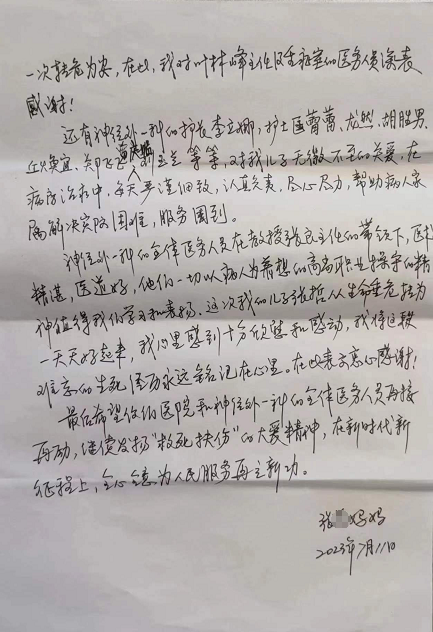 一次转危为安，在此，我对叶林峰主任及重病室的医务人员深表
感谢！
还有神经外一科的护长李立娜，护士匡蕾蕾、龙然、胡胜男、
等等，对我儿子无微不至的关爱，在
病房治疗中，每天严谨细致，认真负责，尽心尽力，帮助病人家
属解决实际困难，服务周到。
神经外一科的全体医务人员在教授张良主任的带领下，医术
精湛，医道好，他们一切以病人为着想的高尚职业操守的精
神值得我们学习和表扬。这次我的儿子张哲从生命垂危转为
一天天好起来，我们心里感到十分欣慰和感动，我将这段
难忘的生死经历永远铭记在心里。在此表示衷心感谢！
最后希望你们医院和神经外一科的全体医务人员再接
再励，继续发扬“救死扶伤”的大爱精神，在新时代新
征程上，全心全意为人民服务再立新功。
张 妈妈
2023年7月11日